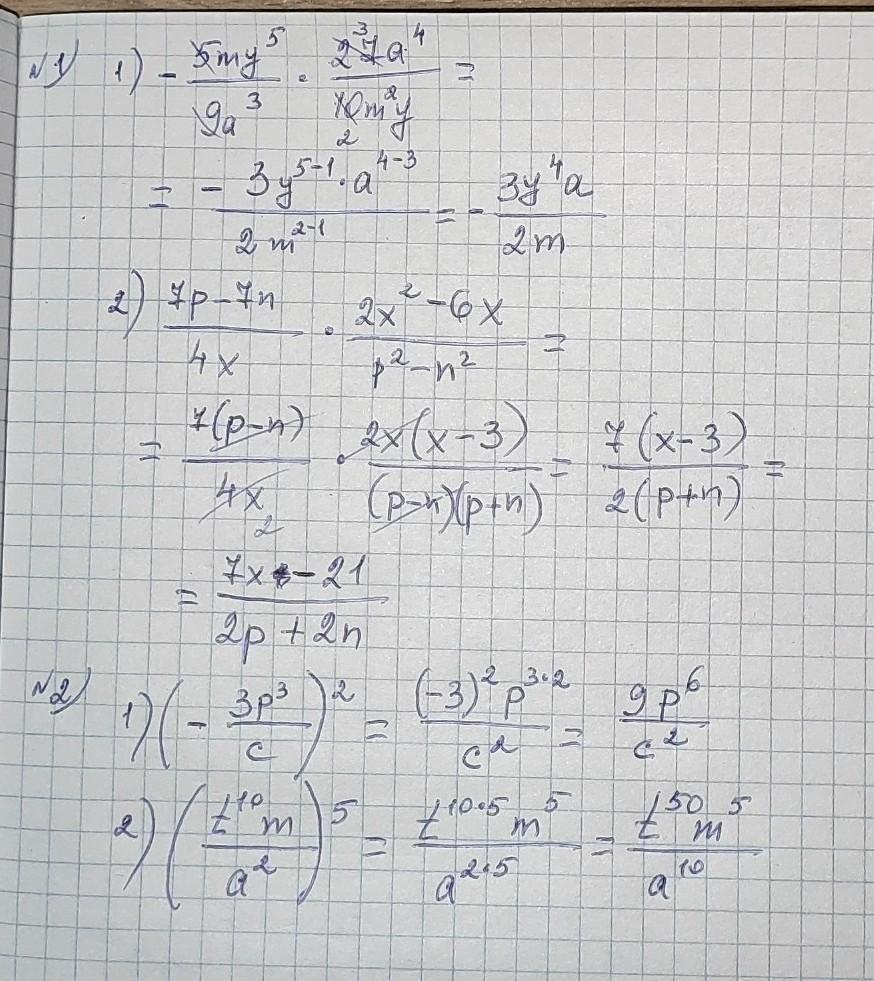 №1) 1) - 5my^5/9a^3 · 27a^4/10m^2y =
= - 3y^(5-1)·a^(4-3)/2m^(2-1) = - 3y^4a/2m
2) 7p-7n/4x · 2x^2-6x/p^2-n^2 =
= 7(p-n)/4x · 2x(x-3)/(p-n)(p+n) = 7(x-3)/2(p+n) =
= 7x-21/2p+2n
№2) 1) (- 3p^3/c)^2 = (-3)^2p^(3·2)/c^2 = 9p^6/c^2
2) (t^10m/a^2)^5 = t^(10·5)m^5/a^(2·5) = t^50m^5/a^10